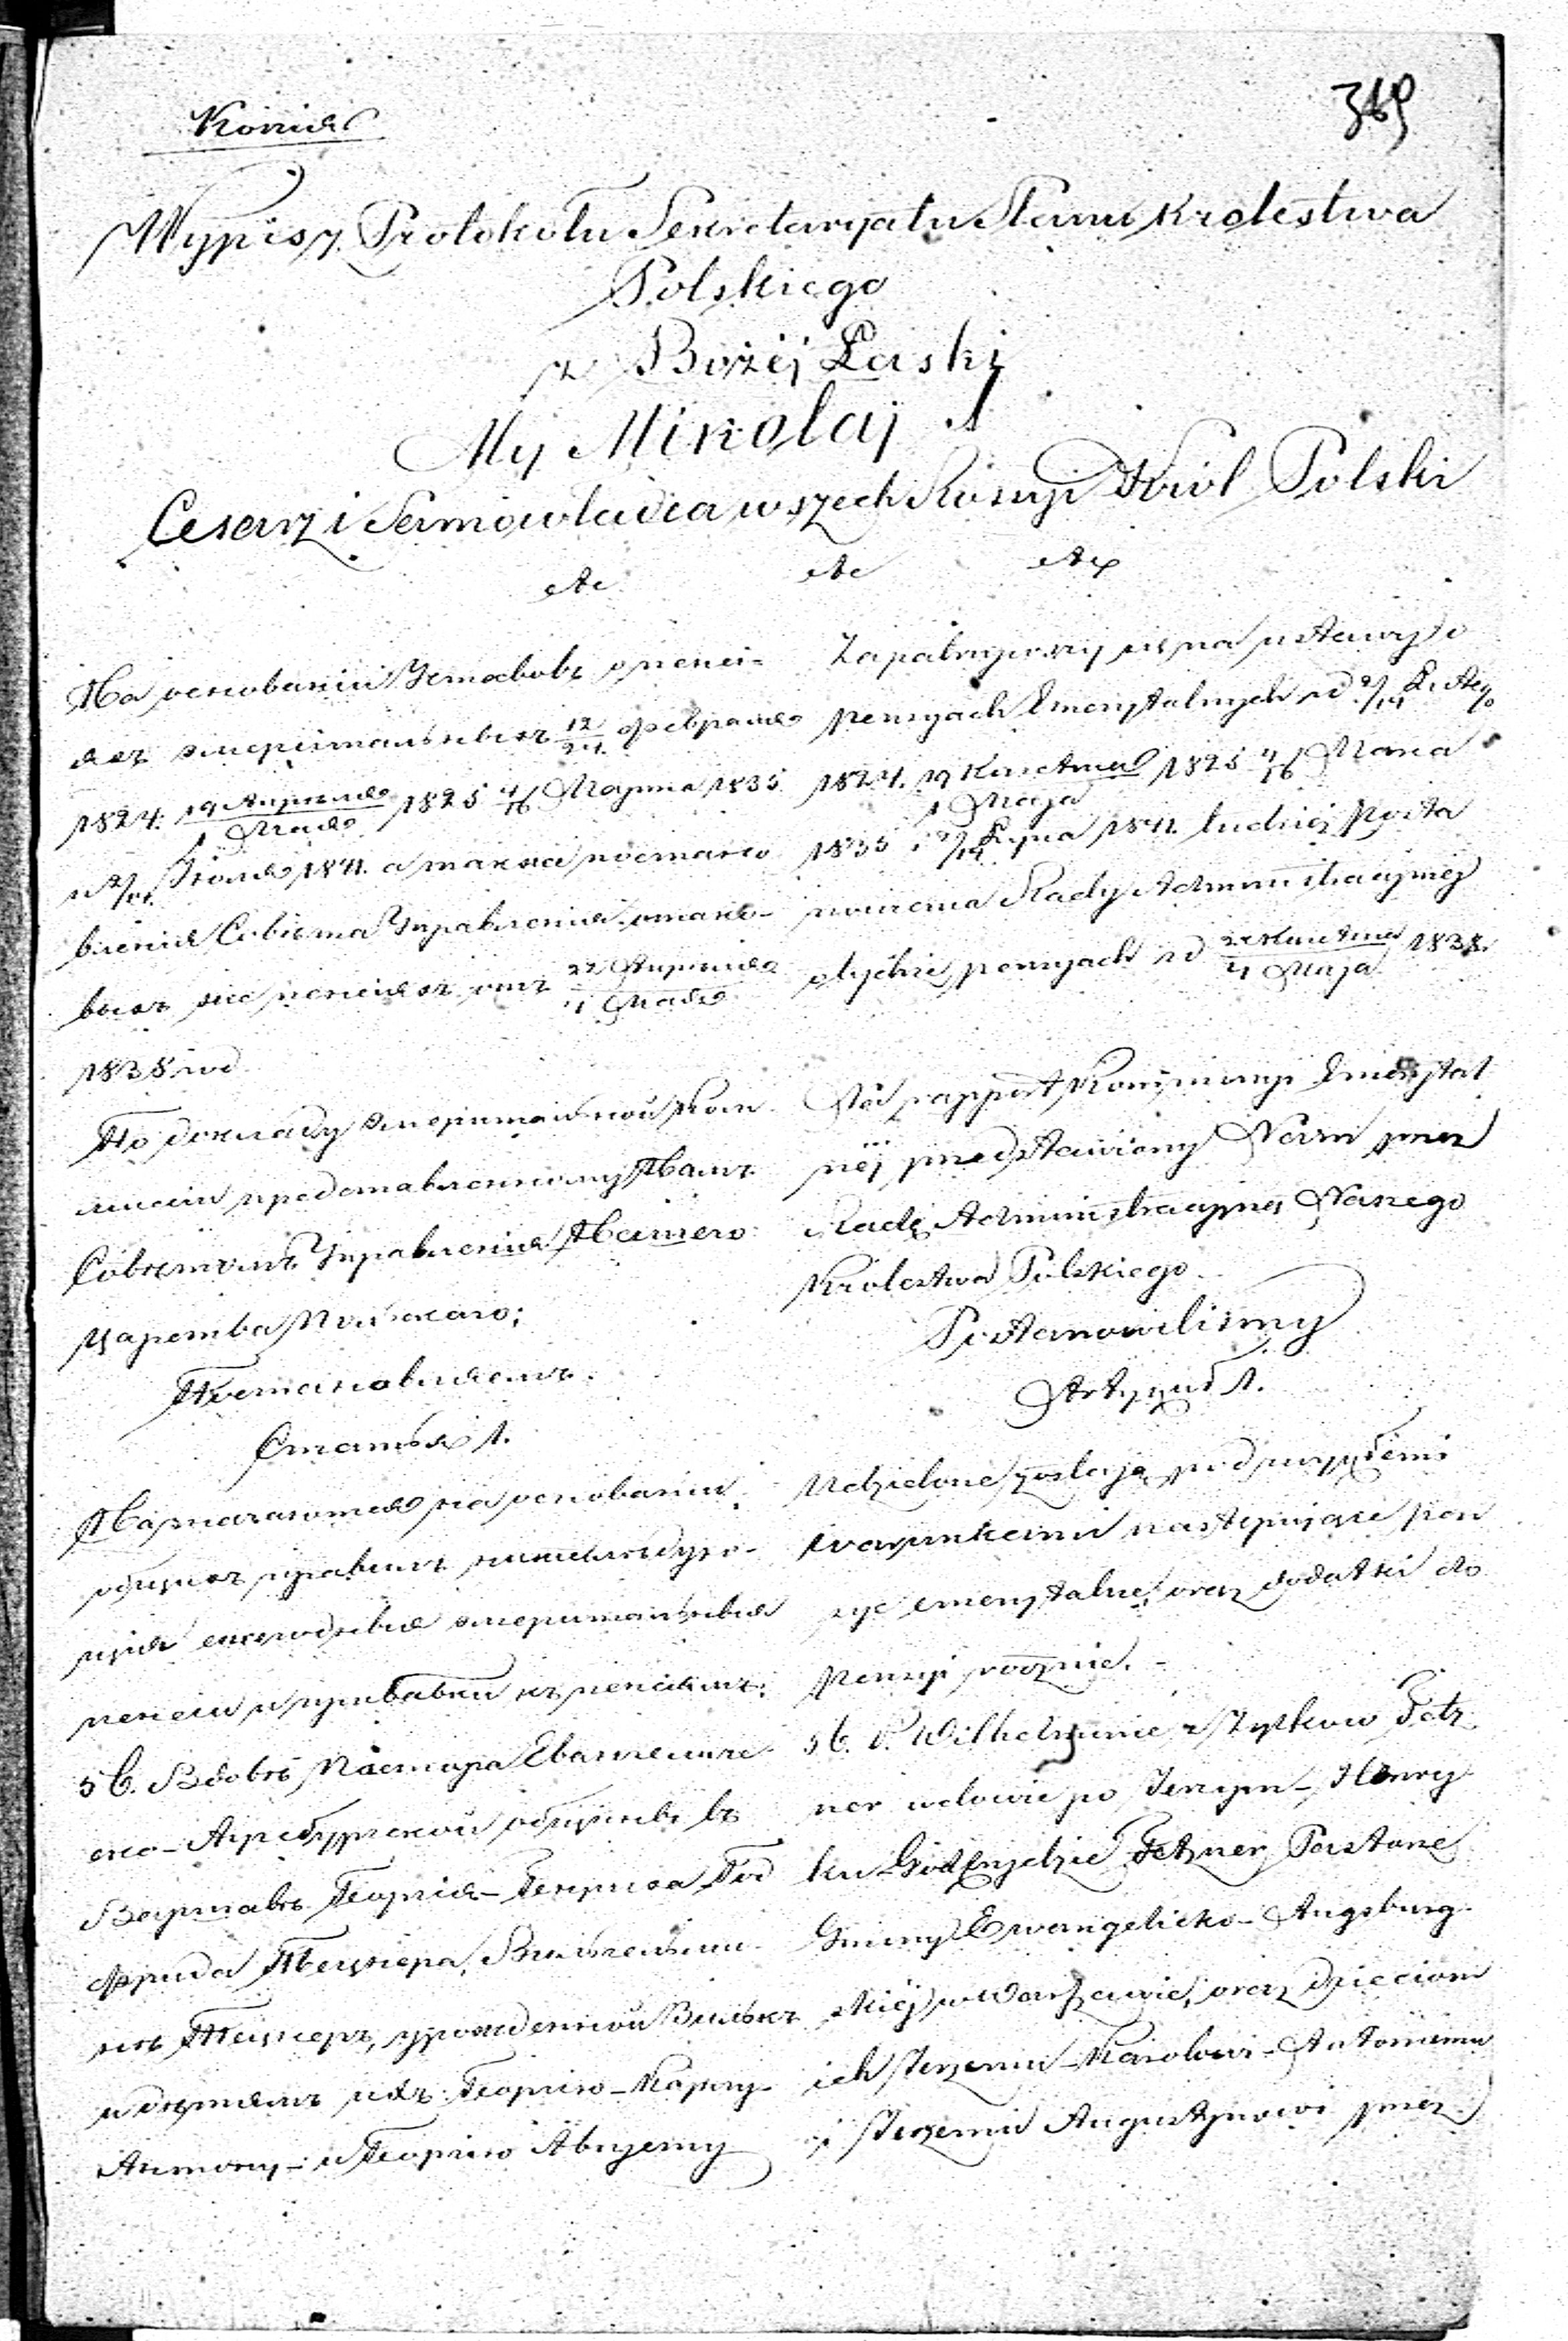 Копія
369
Wypis z Protokołu Sekretaryatu Stanu Krolestwa
Polskiego
z Bożéj Łaski
My Mikołaj I
Cesarz i Samowładca wszech Rossyi Król Polski
etc etc etc
На основаніи Уставовъ о пенсі-
яхъ эмеритальныхъ 12/24 Февраля
1824. 19 Апрѣля/1 Мая 1825 4/16 Марта 1835
и 2/14 Іюля 1841. а также постано
вленія Совѣта Управленія о тако-
выхъ же пенсіяхъ отъ 22 Апрѣля/4 Мая
1838 год
По докладу эмеритальной Ком
миссіи представленному Намъ
Совѣтомъ Управленія Нашего
Царства Польскаго;
Постановляемъ.
Статья 1.
Назначаются на основаніи
общихъ правилъ нижеслѣдую-
щія ежегодныя эмеритальныя
пенсіи и прибавки къ пенсіямъ:
56. Вдовѣ Пастора Евангеличе
ско-Аугсбургской общины въ
Варшавѣ Георгія-Генриха Год
фрида Тецнера, Вильгельми
нѣ Тецнеръ, урожденной
и дѣтямъ ихъ: Георгію-Карлу-
Антону- и Георгію Августу
Zapatrzywszy się na ustawy o
pensyach Emerytalnych od 2/14 Lutego
1824. 19 Kwietnia/1 Maja 1825 4/16 Marca
1835 i 2/14 Lipca 1841. tudzież Posta
nowienia Rady Administracyjnéj
o tychże pensyach od 22 Kwietnia/4 Maja 1838.
Na rapport Kommissyi Emerytal
néj przedstawiony Nam przez
Radę Administracyjną Naszego
Królestwa Polskiego.
Postanowiliśmy
Artykuł 1.
Udzielone zostają pod
warunkami następujące pen
sye emerytalne, oraz dodatki do
pensyi rocznie.-
56. P. Wilhelminie z Fetz
ner wdowie po Jerzym-Henry
ku Gottfrydzie Fetzner Pastorze
Gminy Ewangelicko-Augsburg
skiéj w Warszawie, oraz dzieciom
ich Jerzemu-Karolowi-Antoniemu
i Jerzemu Augustynowi przez